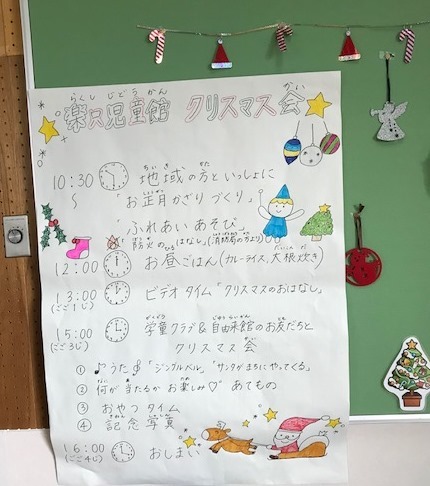 らくし じどうかん かい
楽只児童館 クリスマス会
ちいき かた
10:30 地域の方といっしょに
～ 「お正月かざりづくり」
「ふれあいあそび」
防火のおはなし(消防局の方より)
12:00 お昼ごはん(カレーライス、大根炊き)
13:00 ビデオタイム「クリスマスのおはなし」
(ごご1じ)
15:00 学童クラブ&自由来館のお友だちと
(ごご3じ) クリスマス会
① うた「ジングルベル」「サンタがまちにやってくる」
② 何が当たるかお楽しみ♡あてもの
③ おやつタイム
④ 記念写真
16:00 おしまい
(ごご4じ)